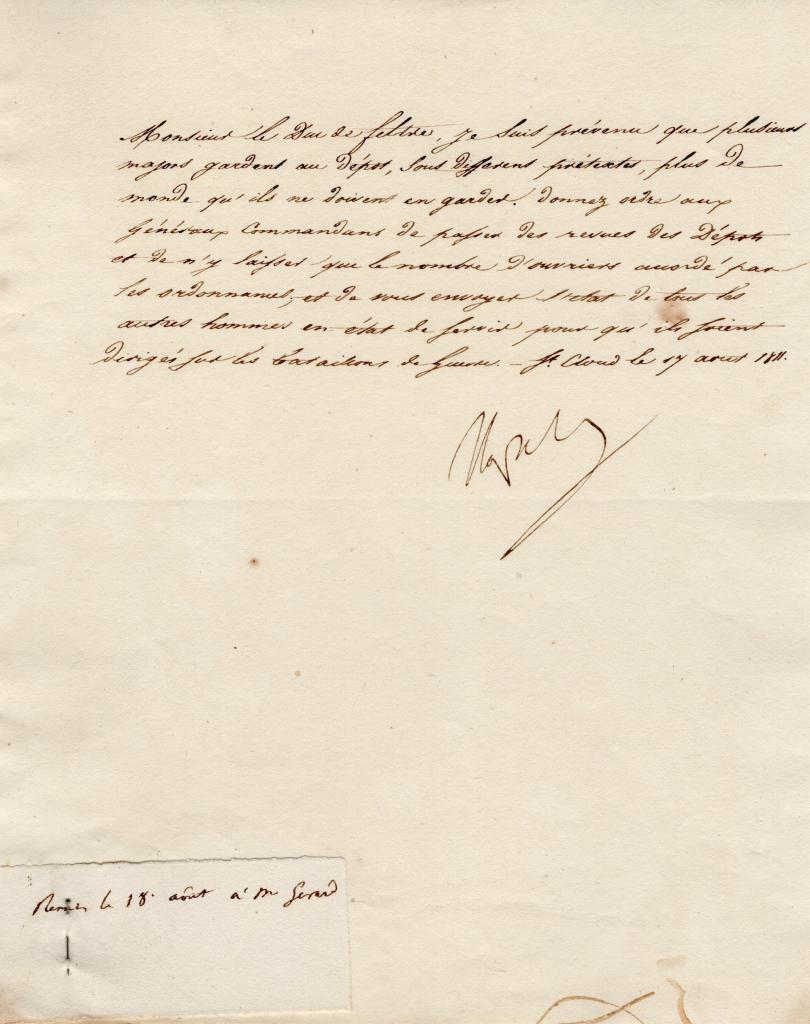 Monsieur le Duc de feltre, je suis prévenu que plusieurs
majors gardent au dépôt, sous differens prétextes, plus de
monde qu'ils ne doivent en garder. donnez ordre aux
Généraux Commandans de passer des revues des Dépots
et de n'y laisser que le nombre d'ouvriers accordé par
les ordonnances, et de vous envoyer l'etat de tous les
autres hommes en état de servir pour qu'ils soient
dirigés sur les bataillons de Guerre. - St. Cloud le 17 aout 1811.
Nap
le 18. août à Mr Gerard